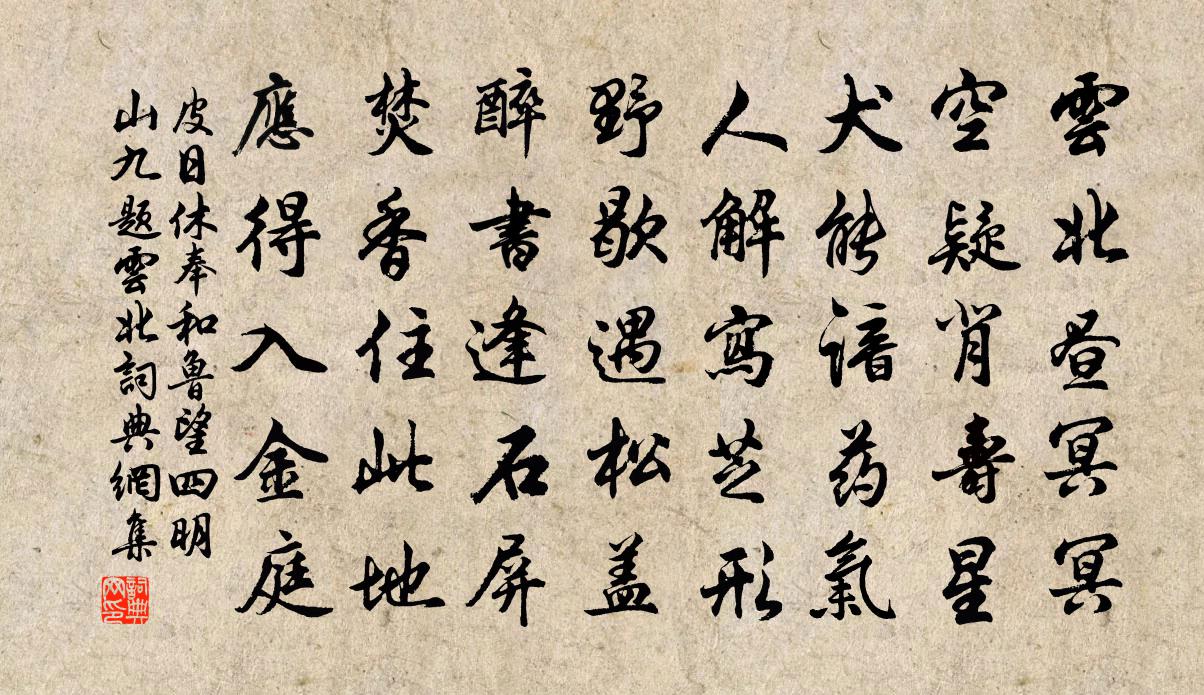 雲北昼冥冥
空疑肖壽星
犬能諳药氣
人解寫芝形
野歇遇松盖
醉書逢石屏
焚香住此地
應得入金庭
皮日休奉和魯望四明
山九题雲北詞典網集
詞典
网印